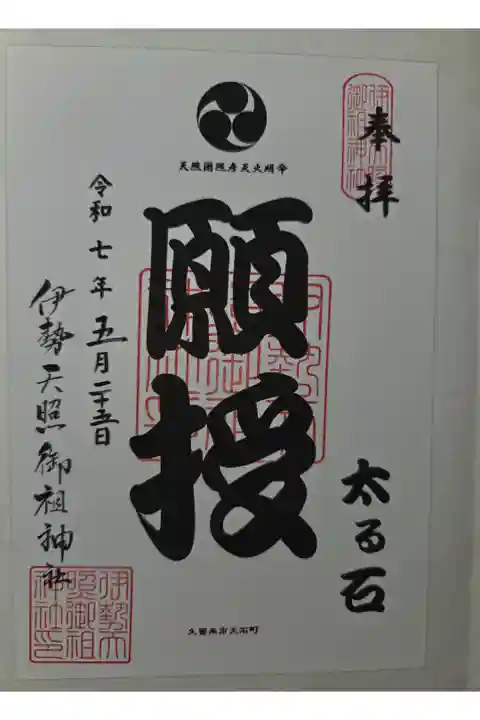 奉拝
天照國照彦天火明命
願授
太る石
令和七年五月二十五日
伊勢天照御祖神社
伊勢天
照御祖
神社印
久留米市大石町